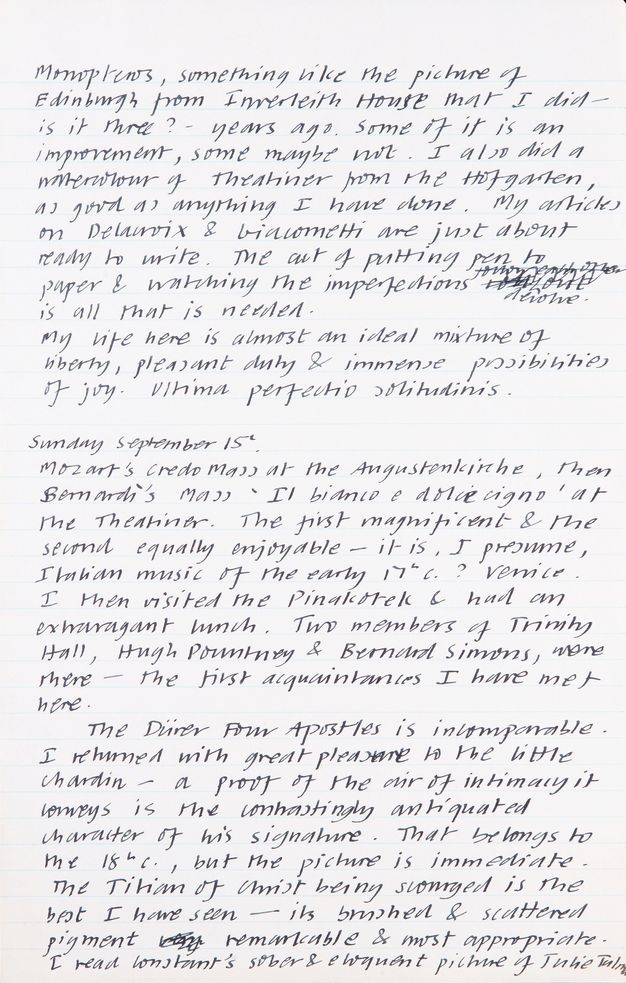 Monopteros, something like the picture of
Edinburgh from Inverleith House that I did –
is it three? – years ago. Some of it is an
improvement, some maybe not. I also did a
watercolour of Theatiner from the Hofgarten,
as good as anything I have done. My articles
on Delacroix & Giacometti are just about
ready to write. The act of putting pen to
paper & watching the imperfections
devolve.
is all that is needed.
My life here is almost an ideal mixture of
liberty, pleasant duty & immense possibilities
of joy. Ultima perfectio solitudinis.
Sunday September 15th.
Mozart's Credo Mass at the Augustenkirche, then
Bernardi's Mass 'Il bianco e dolce cigno' at
the Theatiner. The first magnificent & the
second equally enjoyable – it is, I presume,
Italian music of the early 17th c. ? Venice.
I then visited the Pinakotek & had an
extravagant lunch. Two members of Trinity
Hall, Hugh Pountney & Bernard Simons, were
there – the first acquaintances I have met
here.
The Dürer Four Apostles is incomparable.
I returned with great pleasure to the little
Chardin – a proof of the air of intimacy it
conveys is the contrastingly antiquated
character of his signature. That belongs to
the 18th c., but the picture is immediate.
The Titian of Christ being scourged is the
best I have seen – its brushed & scattered
pigment remarkable & most appropriate.
I read Constant's sober & eloquent picture of Julie Talma